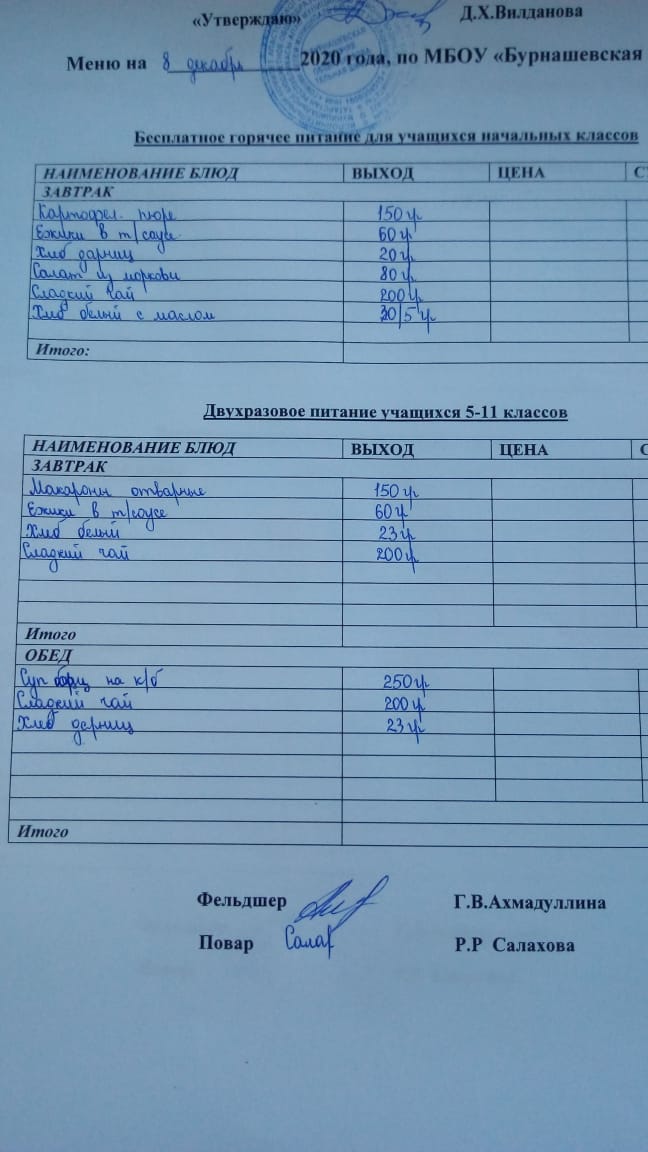 «Утверждаю» Д.Х.Вилданова
Меню на 8 декабря 2020 года, по МБОУ «Бурнашевская
Бесплатное горячее питание для учащихся начальных классов
НАИМЕНОВАНИЕ БЛЮД ВЫХОД ЦЕНА С
ЗАВТРАК
Картофел. пюре 150 гр
Ежики в т/соусе 60 гр
Хлеб дарниц 20 гр
Салат из моркови 80 гр
Сладкий чай 200 гр
Хлеб белый с маслом 30/5 гр
Итого:
Двухразовое питание учащихся 5-11 классов
НАИМЕНОВАНИЕ БЛЮД ВЫХОД ЦЕНА С
ЗАВТРАК
Макароны отварные 150 гр
Ежики в т/соусе 60 гр
Хлеб белый 23 гр
Сладкий чай 200 гр
Итого
ОБЕД
Суп борщ на к/б 250 гр
Сладкий чай 200 гр
Хлеб дарниц 23 гр
Итого
Фельдшер Г.В.Ахмадуллина
Повар Салах Р.Р Салахова